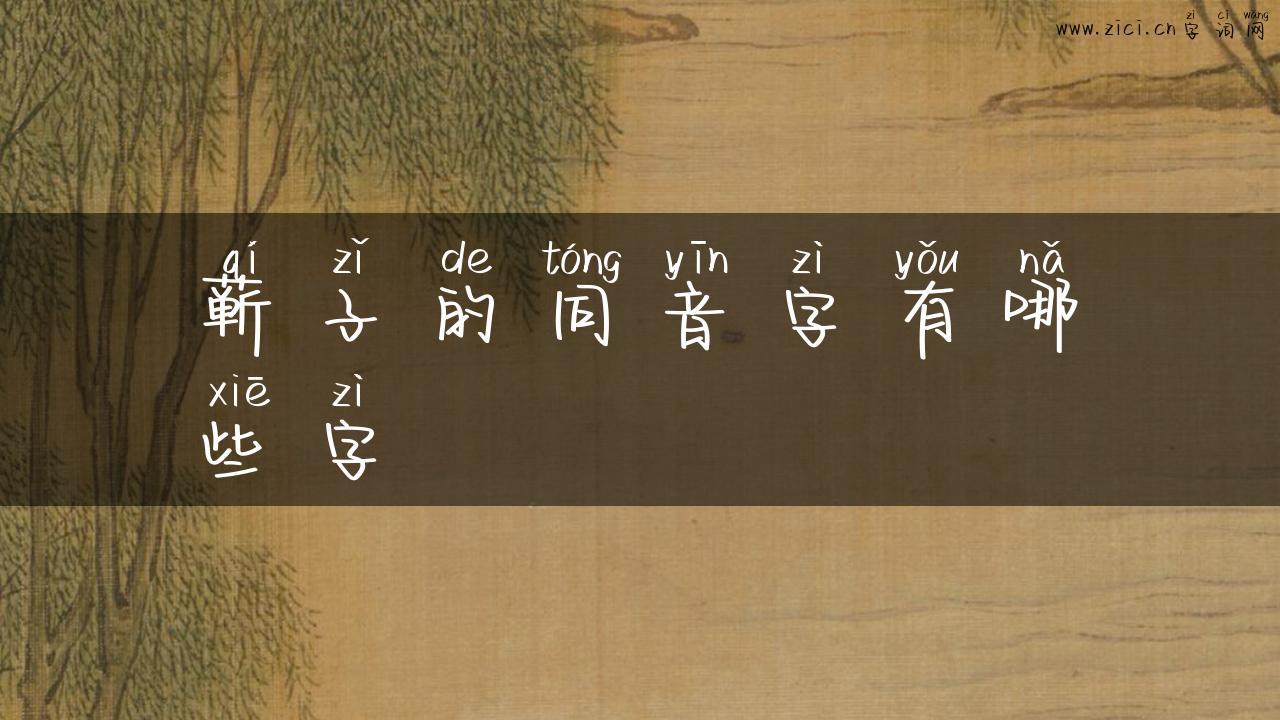 zì cí wǎng
www.zici.cn 字词网
qí zǐ de tóng yīn zì yǒu nǎ
蕲子的同音字有哪
xiē zì
些字